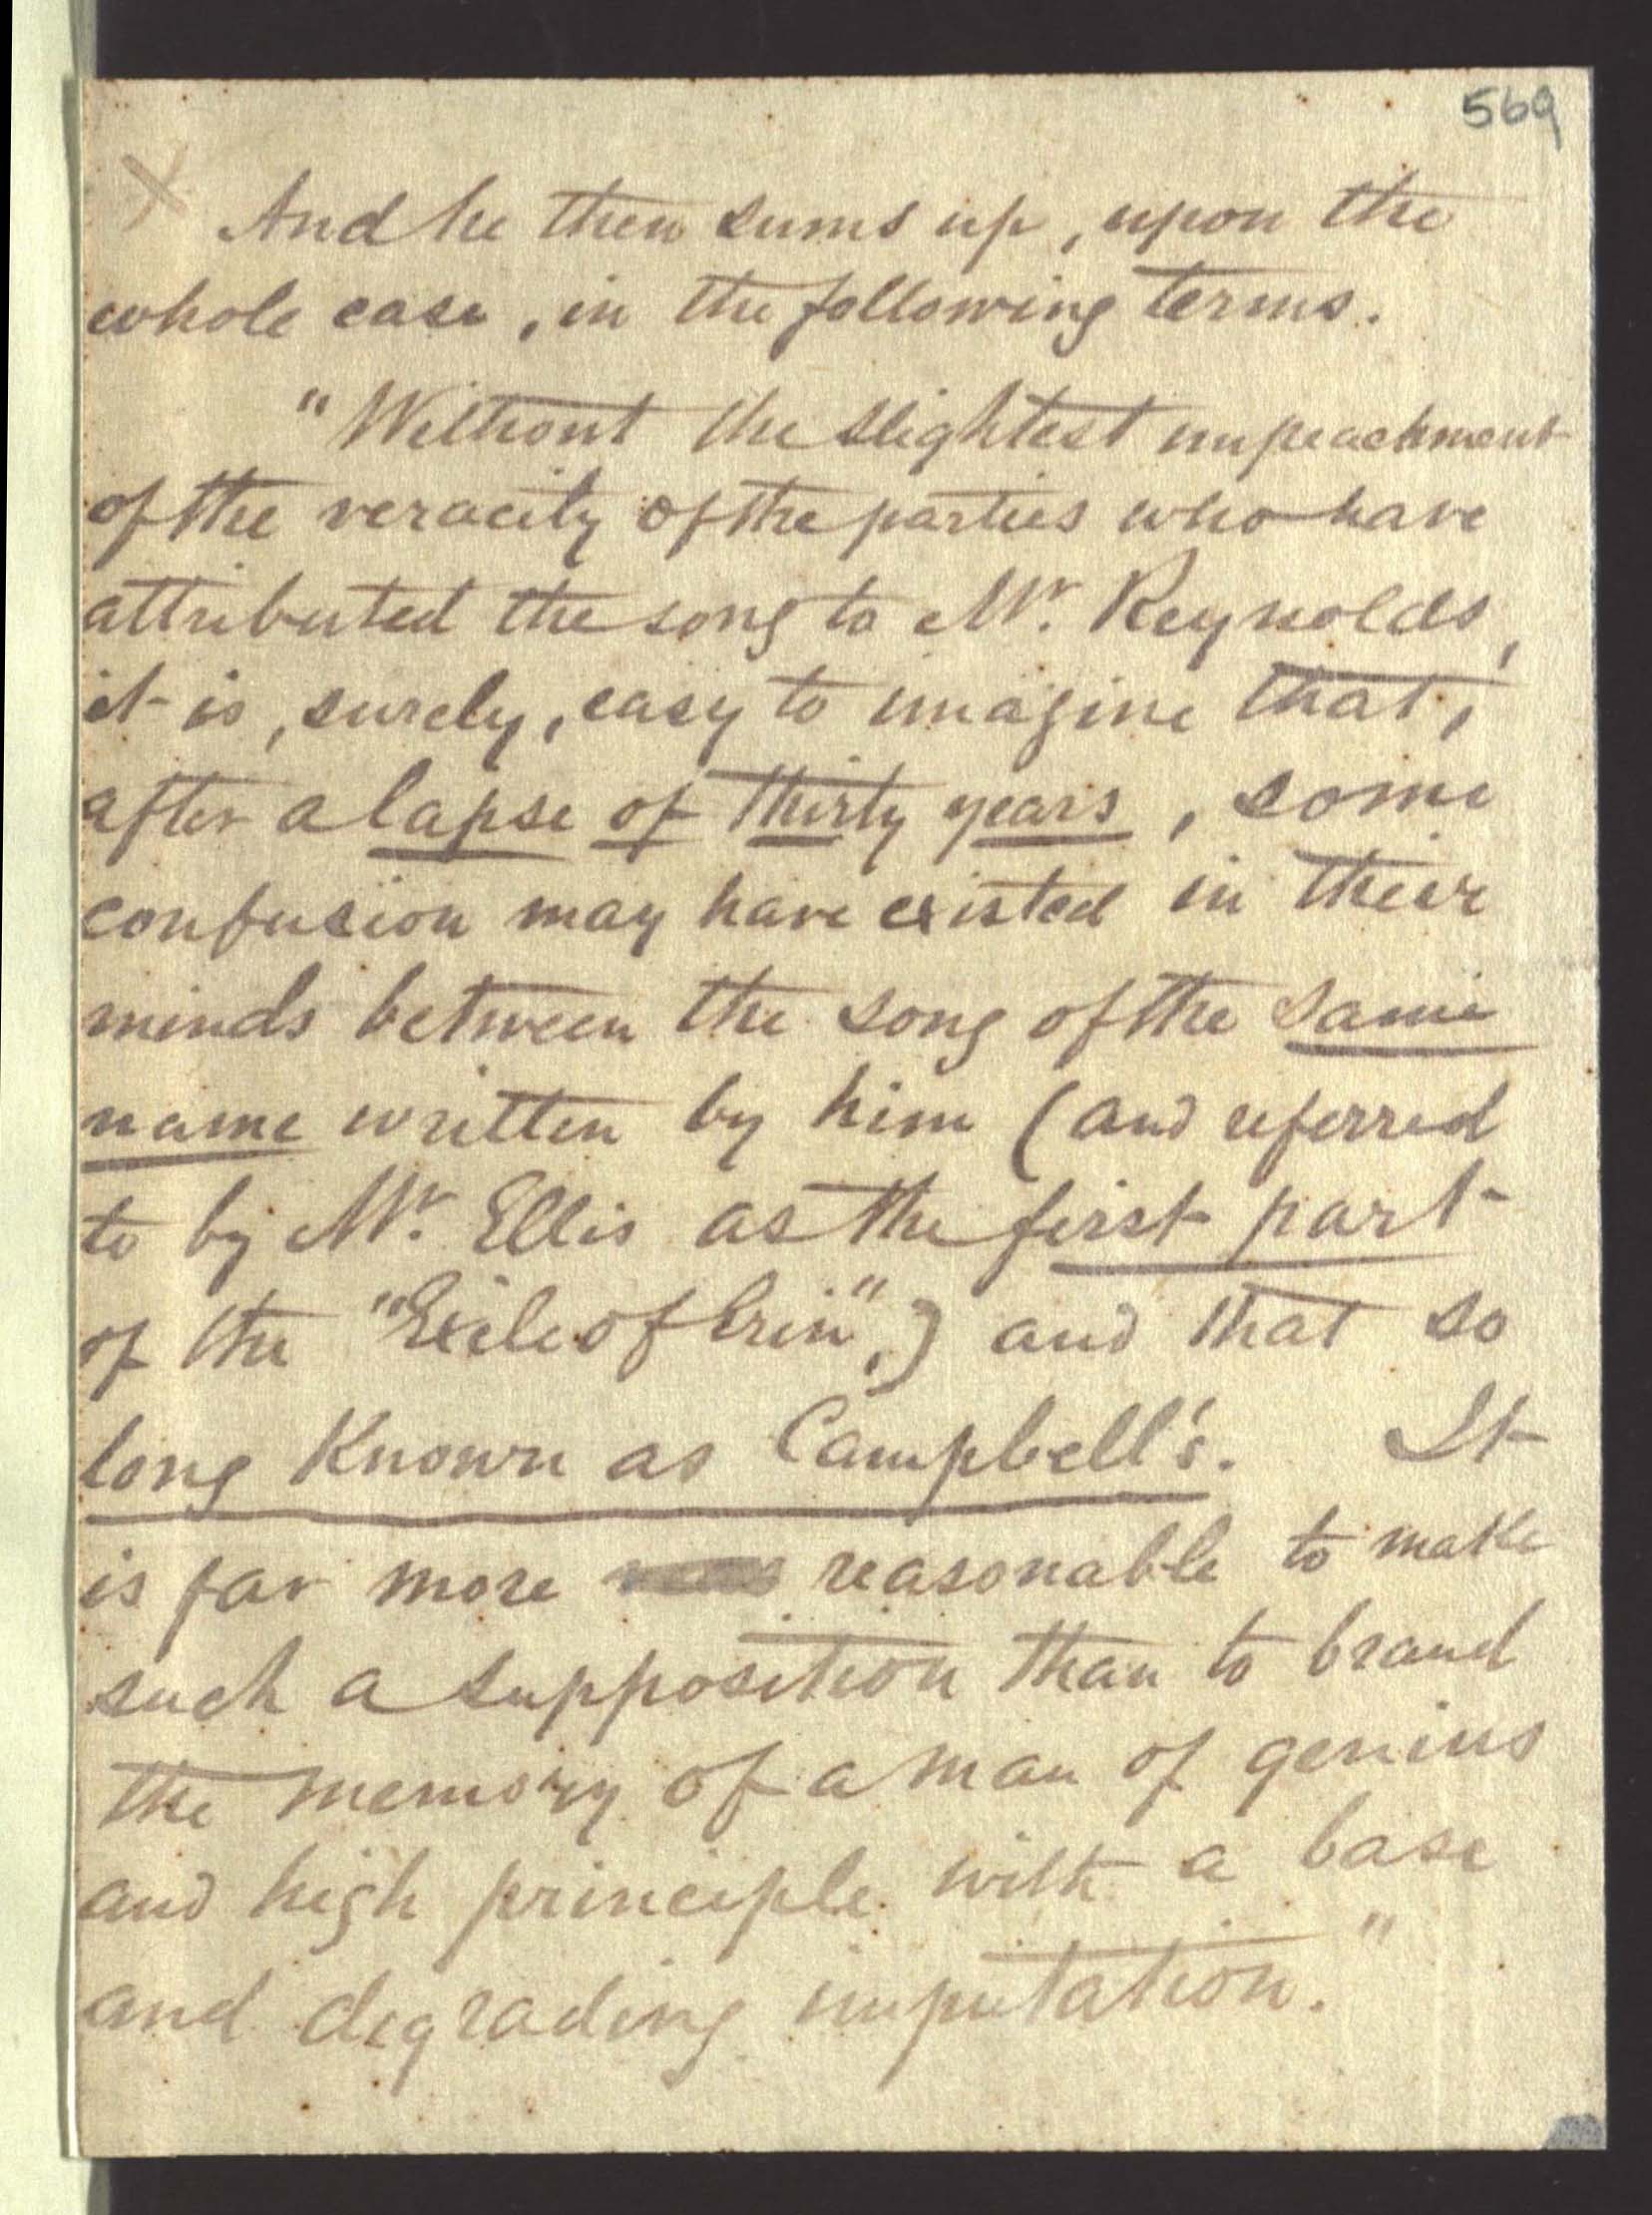 569
And he then sums up, upon the
whole case, in the following terms.
"Without the slightest impeachment
of the veracity of the parties who have
attributed the song to Mr. Reynolds,
it is, surely, easy to imagine that,
after a lapse of thirty years, some
confusion may have existed in their
minds between the song of the same
name written by him (and referred
to by Mr. Ellis as the first part
of the "Exile of Erin",) and that so
long known as Campbell's. It
is far more reasonable to make
such a supposition than to brand
the memory of a man of genius
and high principle with a base
and degrading imputation."